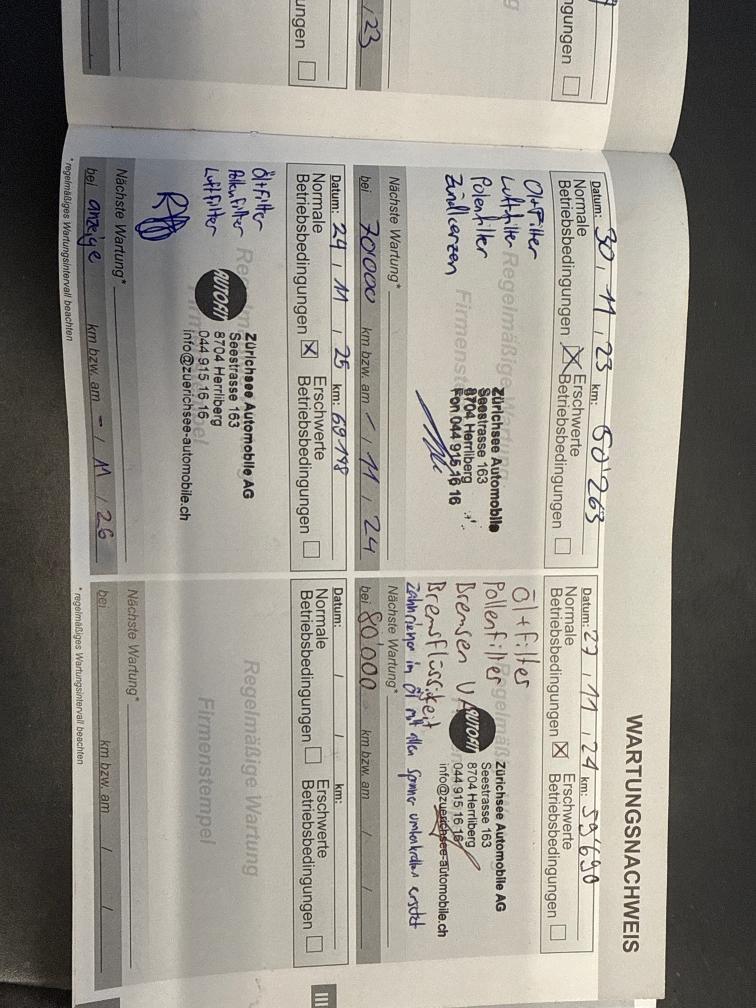 WARTUNGSNACHWEIS
Datum: 30 / 11 / 23 km: 50'263
Normale Betriebsbedingungen ☒ Erschwerte Betriebsbedingungen ☐
Regelmäßige Wartung
Firmenstempel
Öl + Filter
Luftfilter
Polenfilter
Zündcarzen
Zürichsee Automobile
Seestrasse 163
8704 Herrliberg
Fon 044 915 16 16
Nächste Wartung*
bei 70'000 km bzw. am - / 11 / 24
Datum: 27 / 11 / 24 km: 59'690
Normale Betriebsbedingungen ☒ Erschwerte Betriebsbedingungen ☐
Öl + Filter
Pollenfilter
Bremsen
Bremsflüssigkeit
Zahnriemen in Öl mit allen Spanner umlenkrollen ersetzt
AUTOFIT
Zürichsee Automobile AG
Seestrasse 163
8704 Herrliberg
044 915 16 16
info@zuerichsee-automobile.ch
Nächste Wartung*
bei 80'000 km bzw. am / /
Datum: 24 / 11 / 25 km: 69198
Normale Betriebsbedingungen ☒ Erschwerte Betriebsbedingungen ☐
Öl + Filter
Pollenfilter
Luftfilter
AUTOFIT
Zürichsee Automobile AG
Seestrasse 163
8704 Herrliberg
044 915 16 16
info@zuerichsee-automobile.ch
Nächste Wartung*
bei anzeige km bzw. am - / 11 / 26
* regelmäßiges Wartungsintervall beachten
Datum: / / km:
Normale Betriebsbedingungen ☐ Erschwerte Betriebsbedingungen ☐
Regelmäßige Wartung
Firmenstempel
Nächste Wartung*
bei km bzw. am / /
* regelmäßiges Wartungsintervall beachten
III